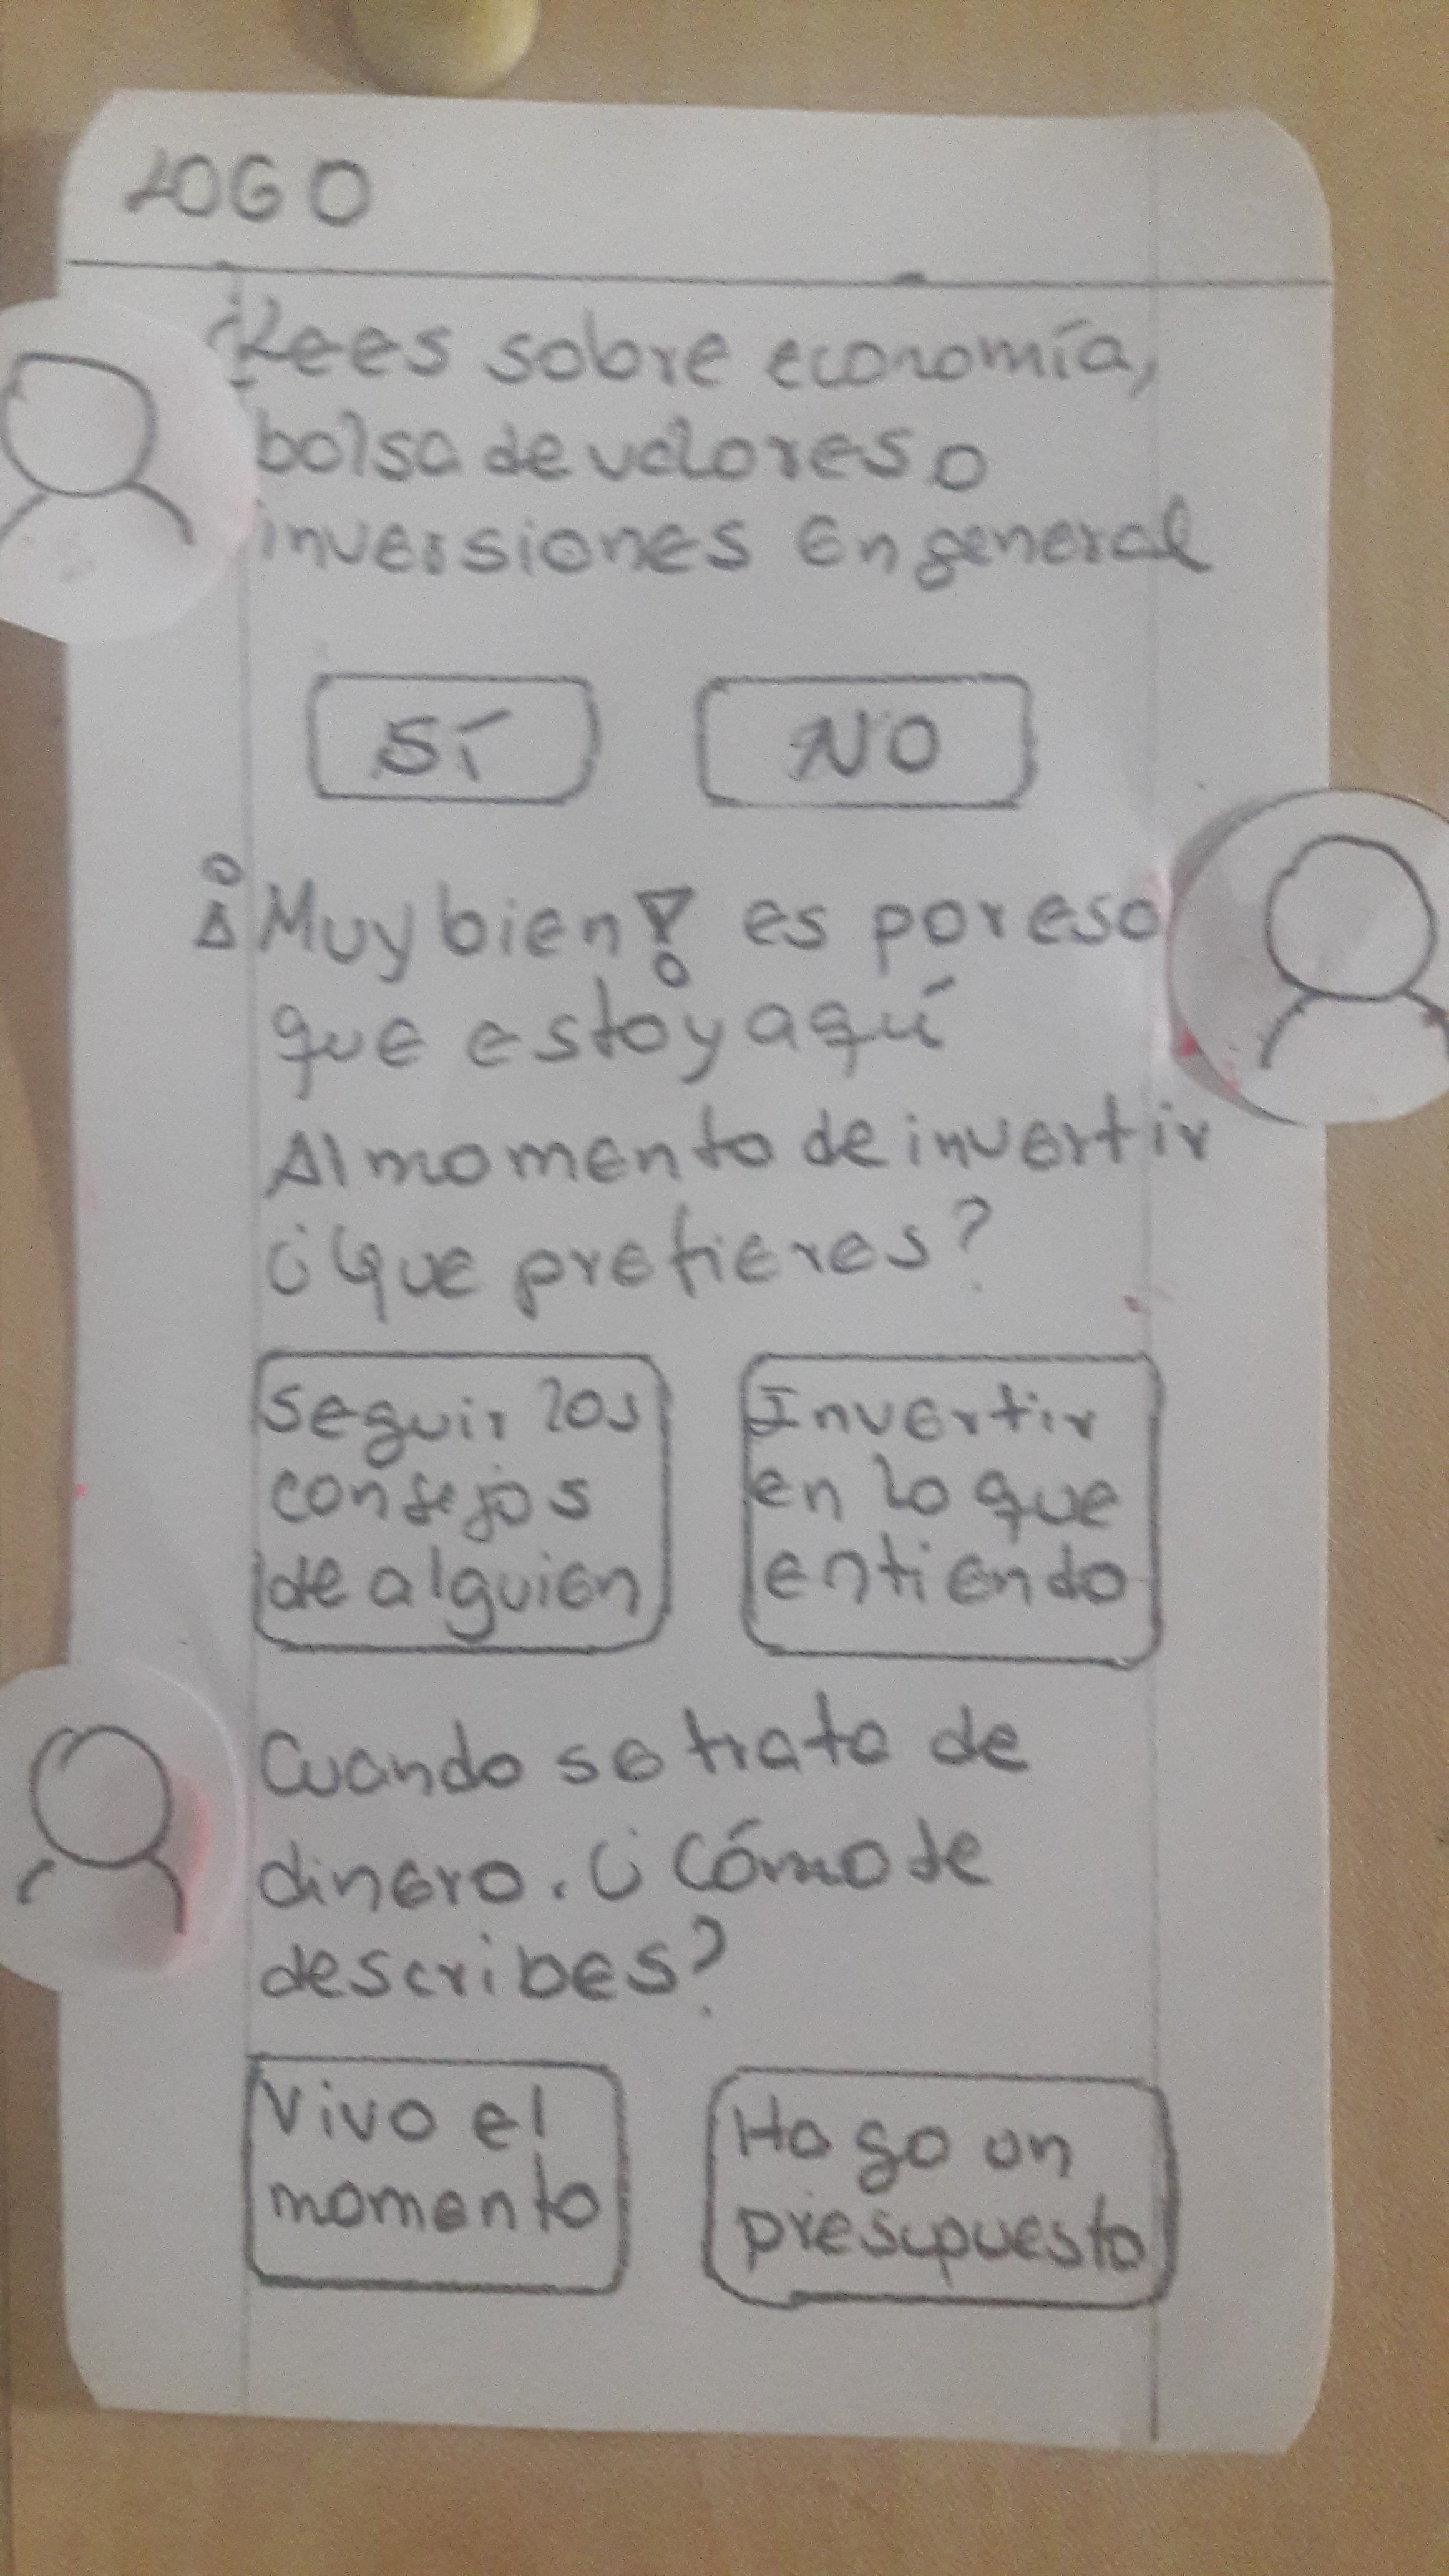 LOGO
¿Lees sobre economía,
bolsa de valores o
inversiones en general
SÍ
NO
¡Muy bien! es por eso
que estoy aquí
Al momento de invertir
¿que prefieres?
Seguir los
consejos
de alguien
Invertir
en lo que
entiendo
Cuando se trata de
dinero. ¿Cómo te
describes?
Vivo el
momento
Hago un
presupuesto